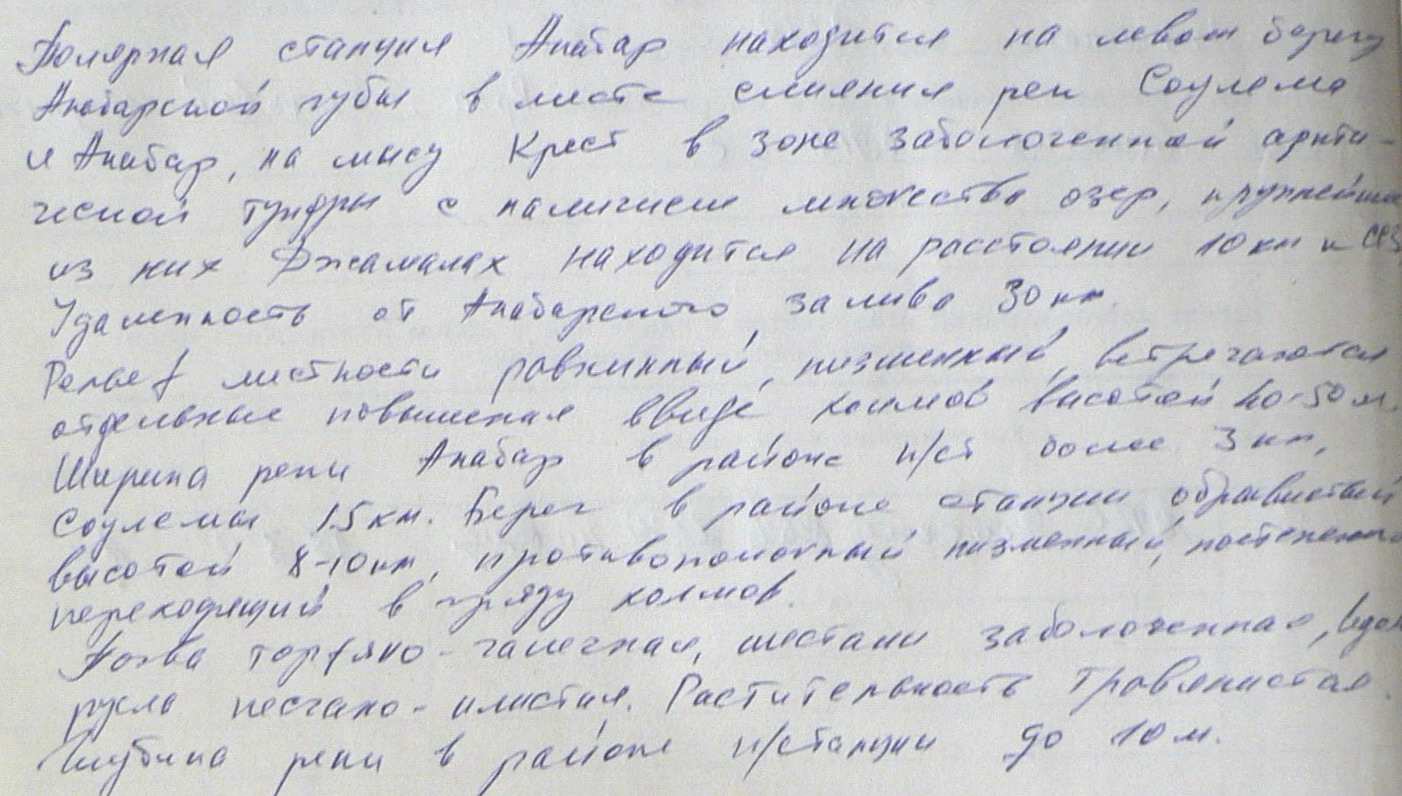 Полярная станция Анабар находится на левом берегу
Анабарской губы в месте слияния рек Соулема
и Анабар, на мысу Крест в зоне заболоченной аркти-
ческой тундры с наличием множества озер, крупнейшее
из них Джамалах находится на расстоянии 10 км к СВЗ
Удаленность от Анабарского залива 30 км.
Рельеф местности равнинный, низменный, встречаются
отдельные повышения ввиде холмов высотой 40-50 м.
Ширина реки Анабар в районе п/ст более 3 км,
Соулемы 1.5 км. Берег в районе станции обрывистый
высотой 8-10 км, противоположный низменный, постепенно
переходящий в гряду холмов.
Почва торфяно-галечная, местами заболоченная, вдоль
русла песчано-илистая. Растительность травянистая.
Глубина реки в районе п/станции до 10 м.